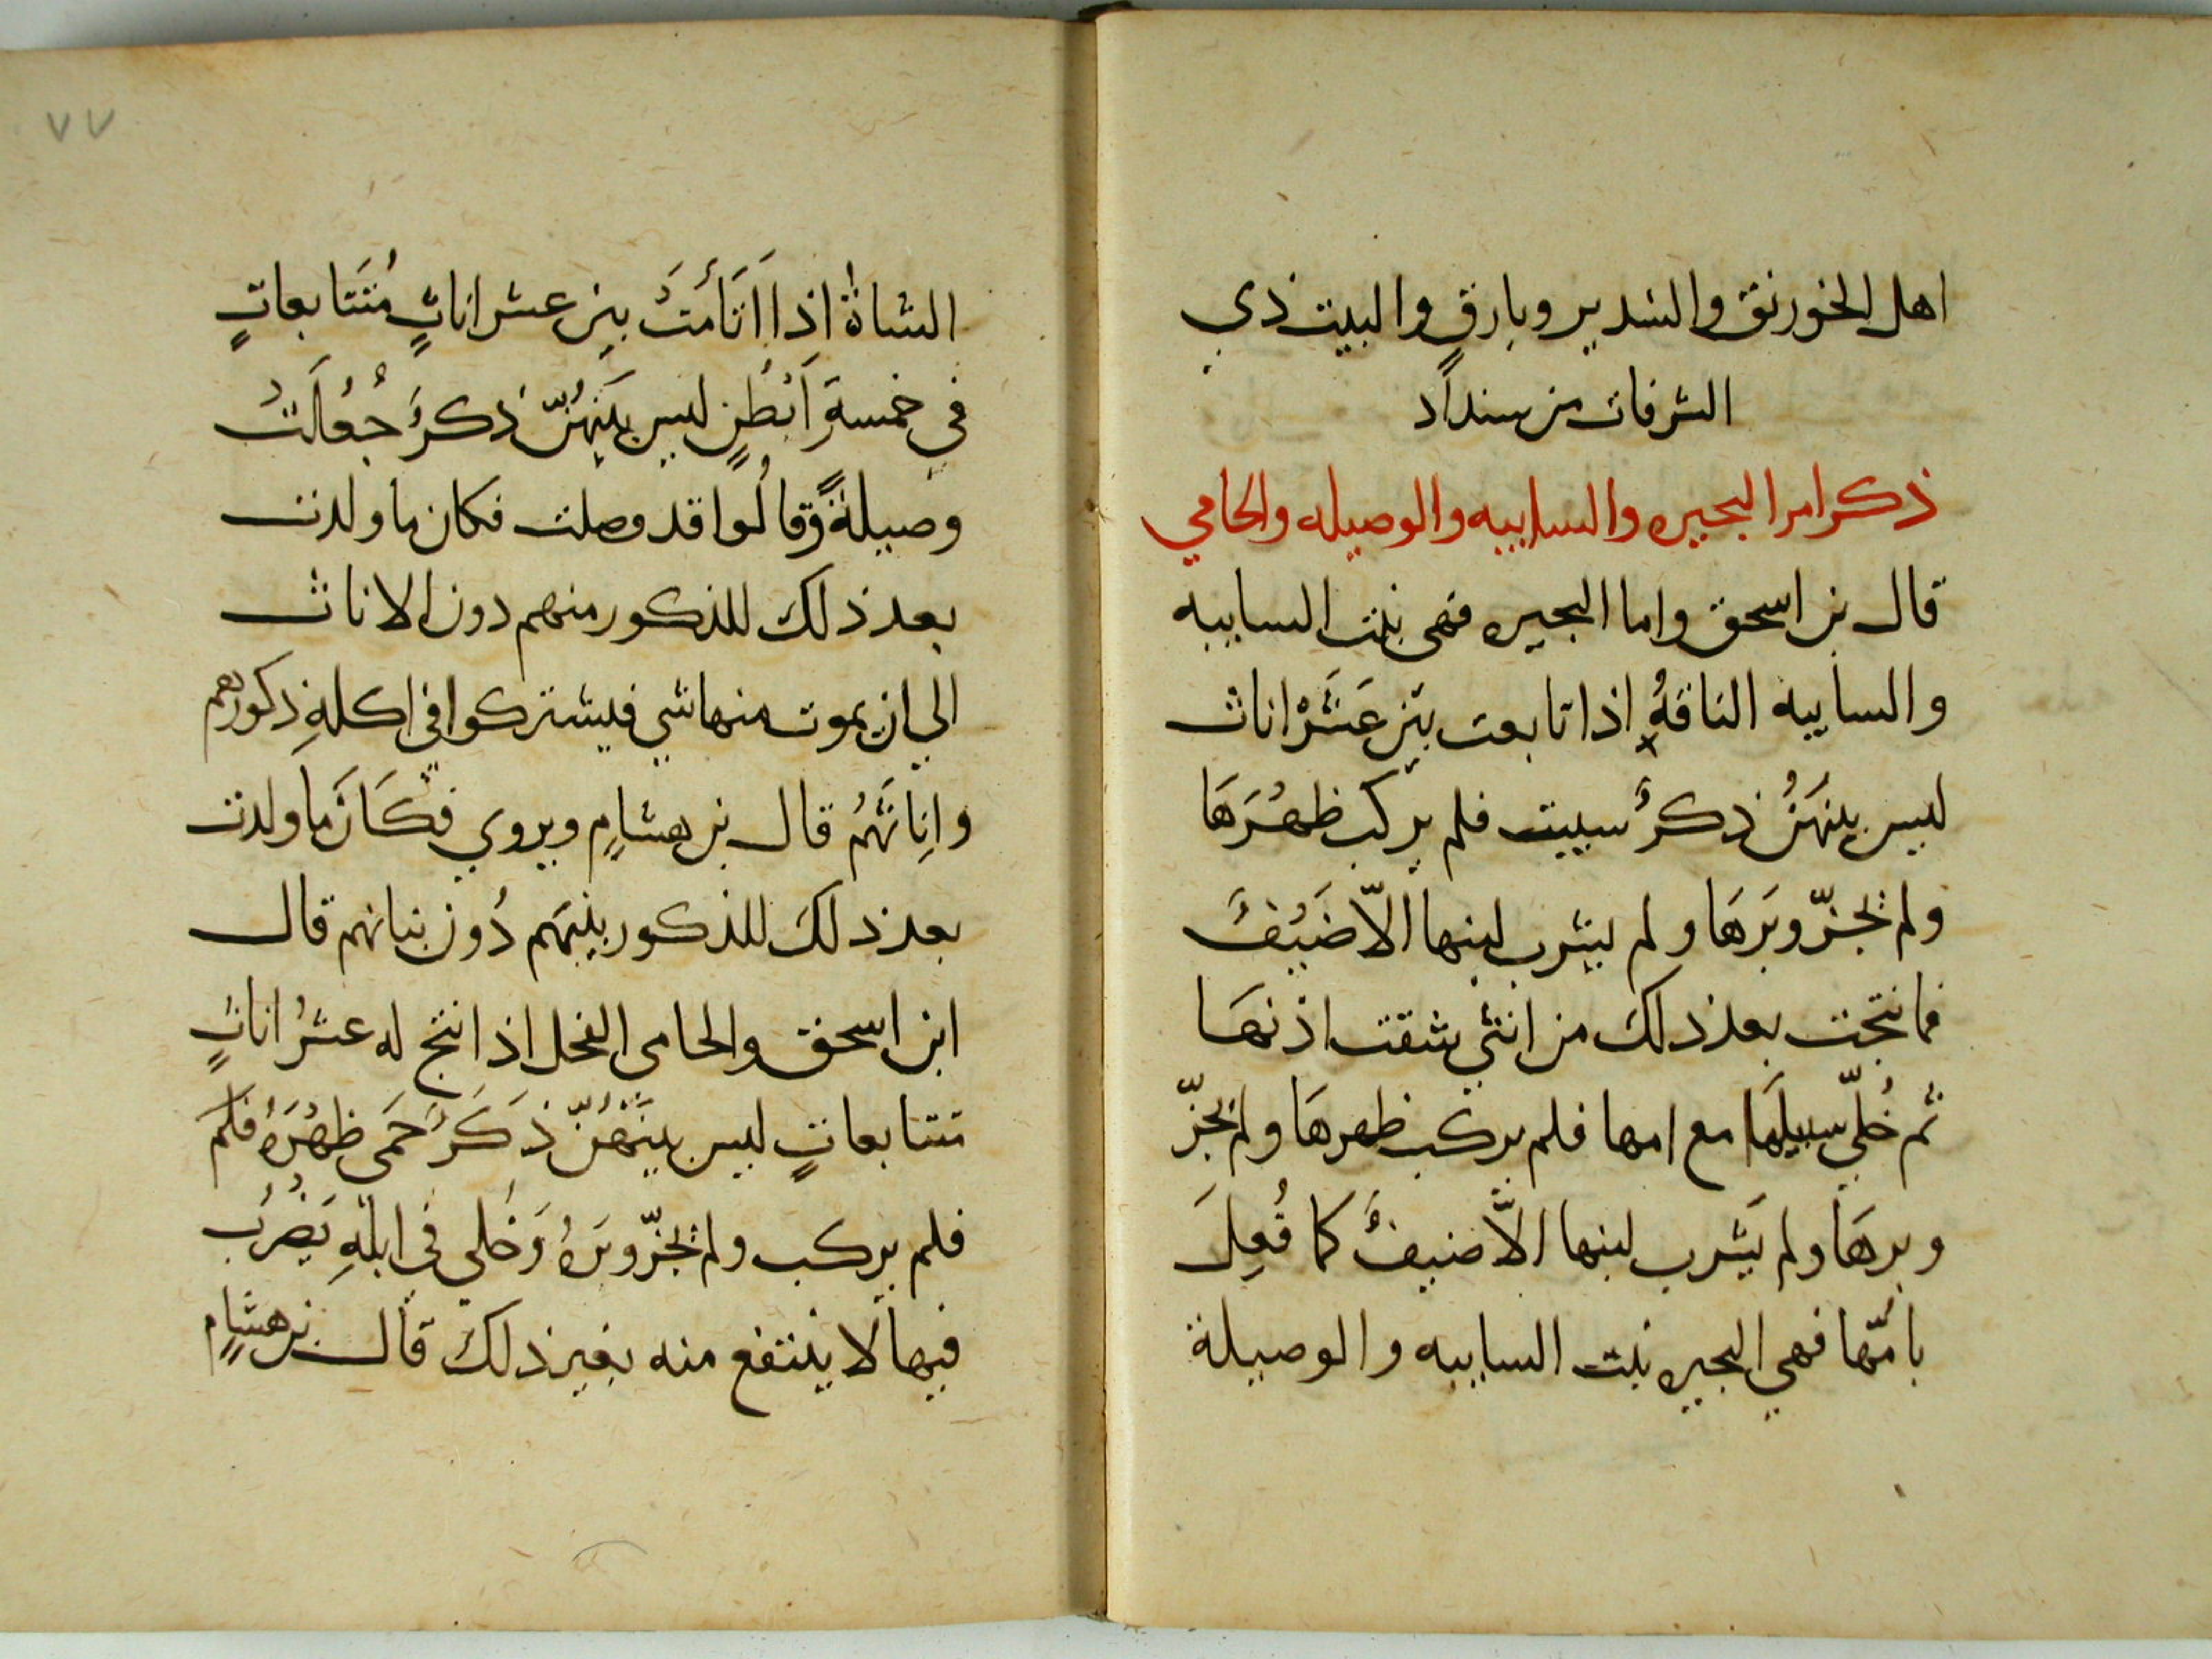 اهل الخورنق والسدير وبارقٍ والبيت ذي
الشرفات من سنداد
ذكر امر البحيره والسايبه والوصيله والحامي
قال بن اسحق واما البحيره فهى بنت السايبه
والسايبه الناقةُ اذا تابعت بين عَشَرْ اناث
ليس بينهَنُ ذكرُ سيبت فلم يركب ظهْرَهَا
ولم يُجزّ وبَرَهَا ولم يشرب لبنها الاّ ضَيْفُ
فما نتجت بعد ذلك من انثي شقت اذنهَا
ثم خُلّي سبيلهَا مع امها فلم يركب ظهرهَا ولم يجزّ
وبرهَا ولم يَشرب لبنها الاَّ ضيفُ كما فُعِلَ
بامّها فهي البحيره بنت السايبه والوصيلة
٧٧
الشاةُ اذا اَتَأَمَتْ بين عشر اناثٍ مُتَتَابعاتٍ
في خمسة اَبْطُنٍ ليس بيْنهُنّ ذكرُ جُعِلَتْ
وصيلةً وقالُوا قد وصلت فكان ما ولدت
بعد ذلك للذكور منهم دون الاناث
الي ان يموت منها شي فيشتركوا في اكلهِ ذكورهم
وانِاثَهُمُ قال بن هشامٍ ويروي فكَانَ ما ولدت
بعد ذلكَ للذكور بنيهم دُون بناتهم قال
ابن اسحق والحامى الفحل اذا نتج له عشرُ اناثٍ
متتابعاتٍ ليس بينَهُنّ ذَكَرُ حَمَى ظهْرَهُ فلم
فلم يركب ولم يُجزّ وبَرهُ وَخُلي في ابلهِ يَضْرَب
فيها لا ينتفع منه بغير ذلك قال بن هشامٍ